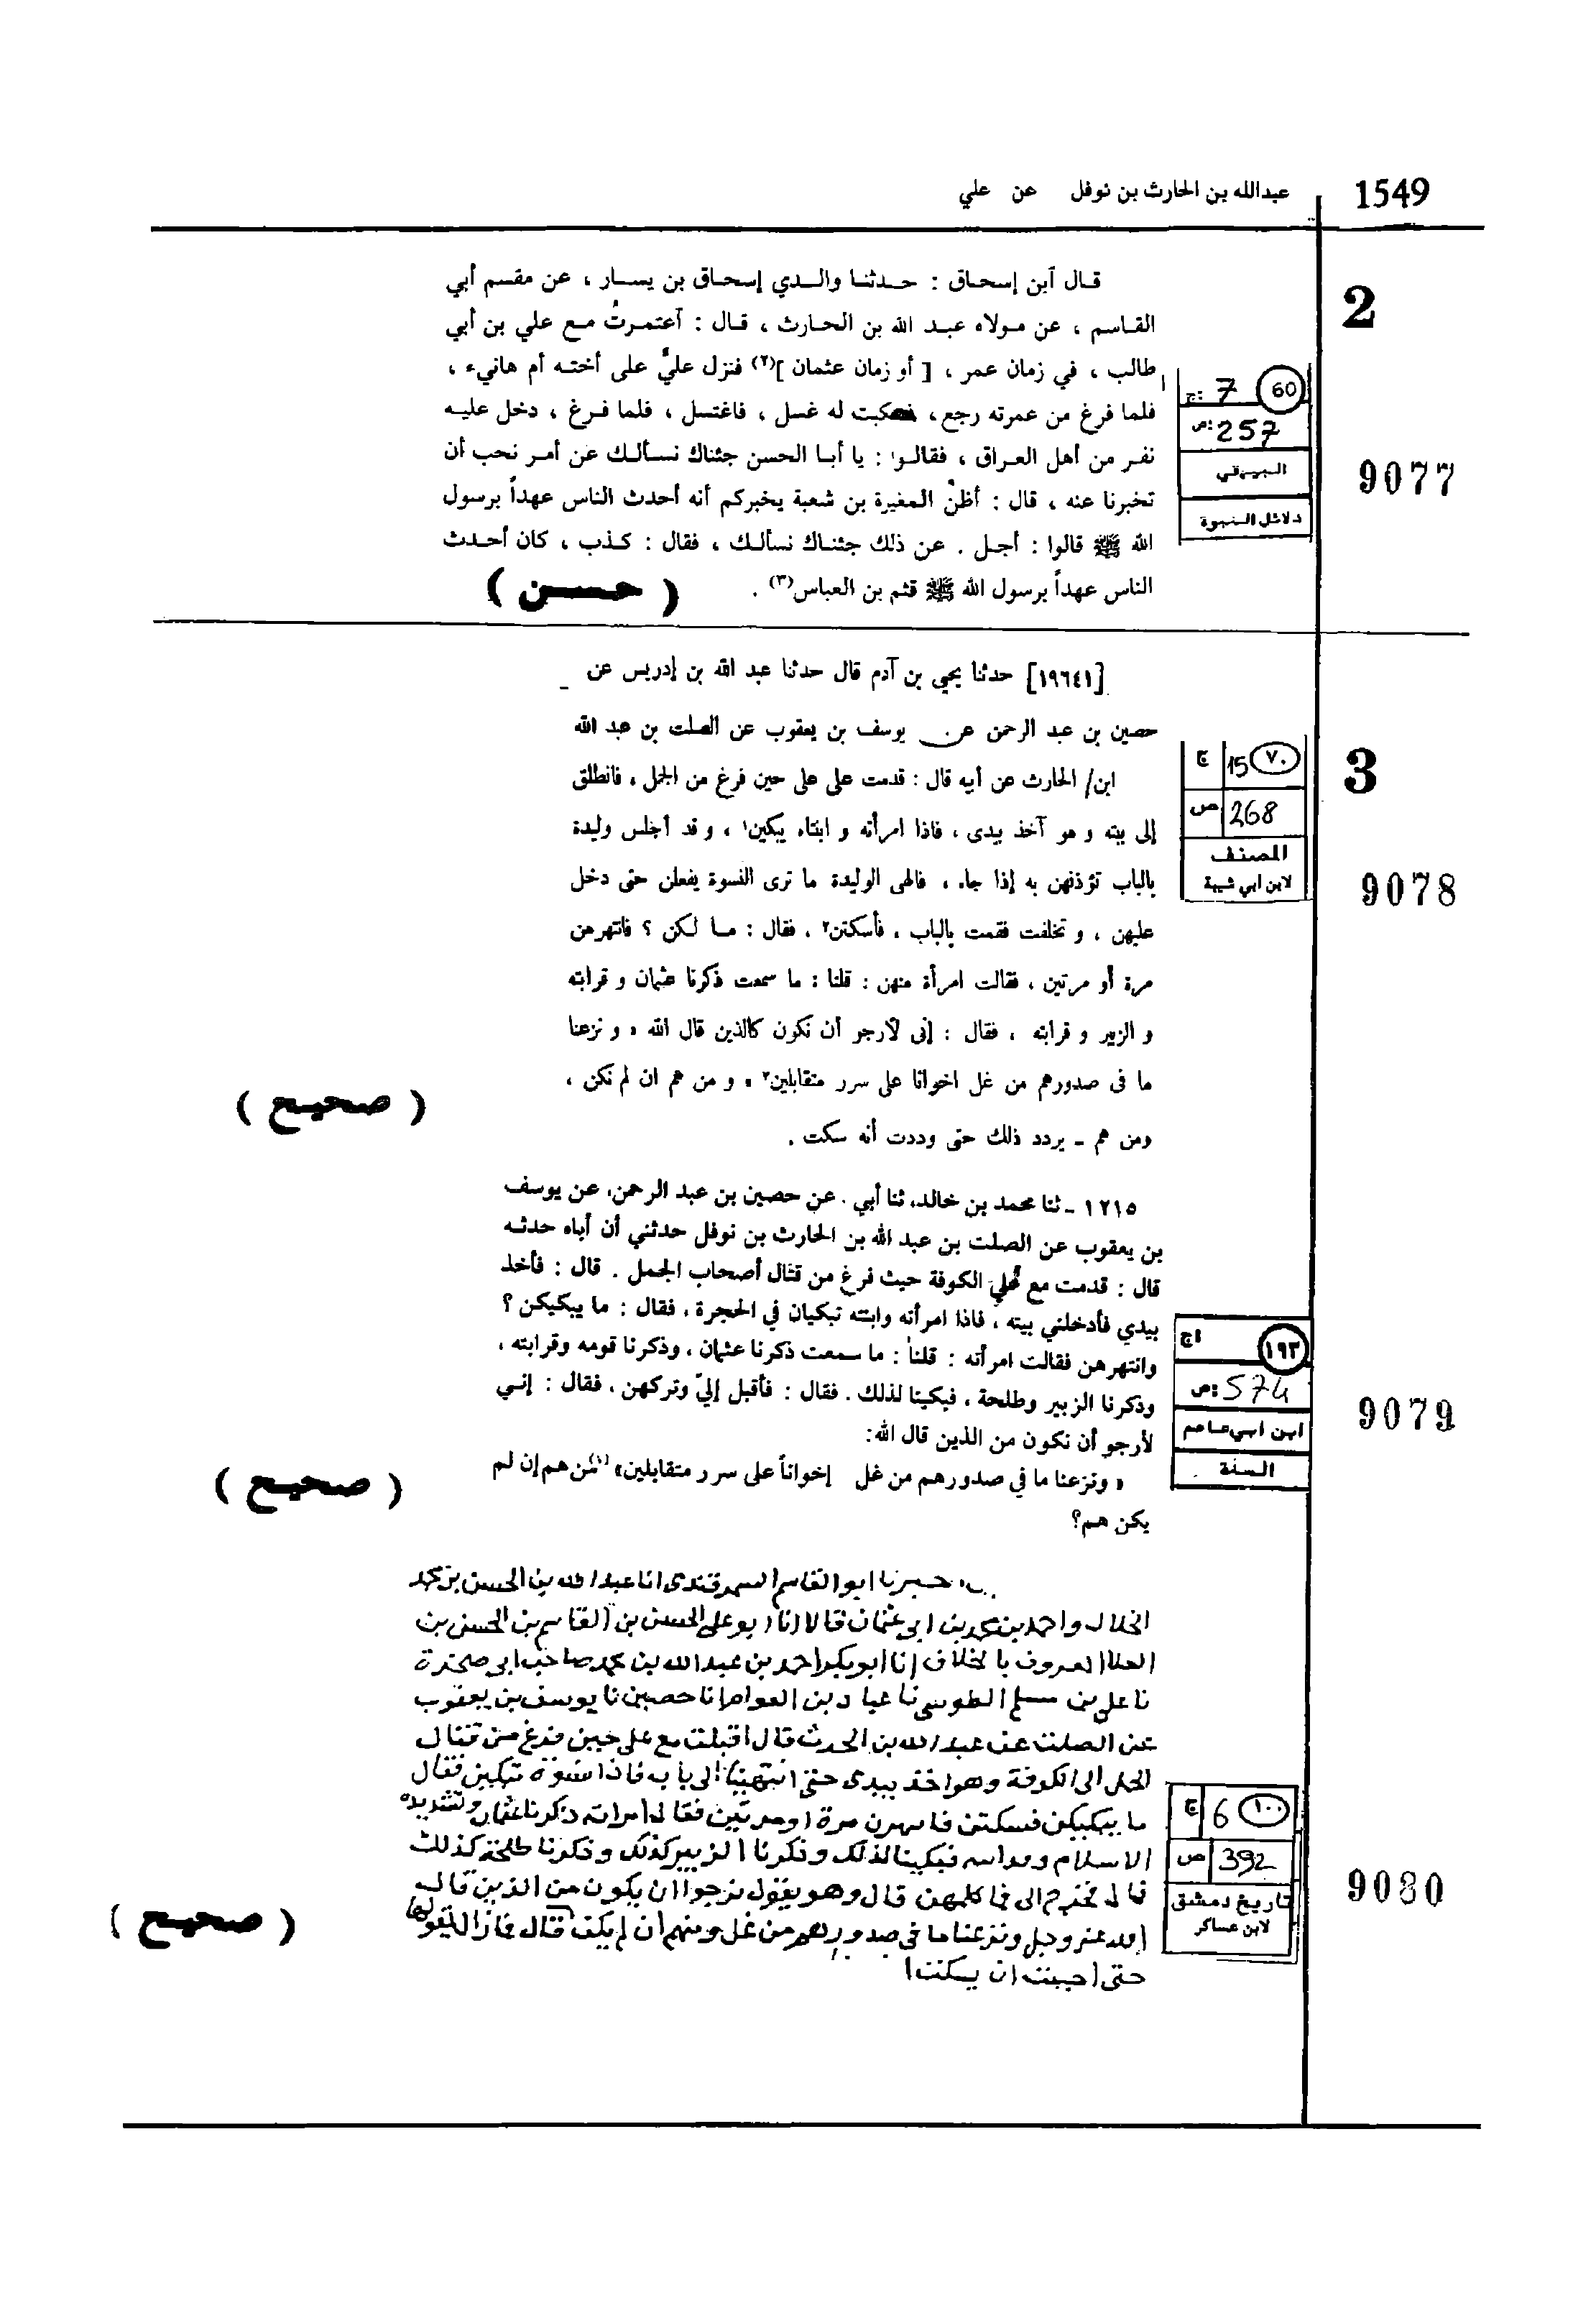 1549
عبدالله بن الحارث بن نوفل عن علي
2
قال آبن إسحاق : حدثنا والدي إسحاق بن يسار ، عن مقسم أبي
القاسم ، عن مولاه عبد الله بن الحارث ، قال : آعتمرتُ مع علي بن أبي
طالب ، في زمان عمر ، [ أو زمان عثمان ](٢) فنزل عليٌّ على أخته أم هانيء ،
فلما فرغ من عمرته رجع، فسكبت له غسل ، فاغتسل ، فلما فرغ ، دخل عليه
نفر من أهل العراق ، فقالوا : يا أبا الحسن جئناك نسألك عن أمر نحب أن
تخبرنا عنه ، قال : أظنُّ المغيرة بن شعبة يخبركم أنه أحدث الناس عهداً برسول
الله ﷺ قالوا : أجل . عن ذلك جئناك نسألك ، فقال : كذب ، كان أحدث
الناس عهداً برسول الله ﷺ قثم بن العباس(٣) .
( حسن )
60
ج: 7
ص: 257
البيهقي
دلائل النبوة
9077
3
[١٩٦٤١] حدثنا يحيى بن آدم قال حدثنا عبد الله بن إدريس عن
حصين بن عبد الرحمن عن يوسف بن يعقوب عن الصلت بن عبد الله
ابن/ الحارث عن أبيه قال : قدمت على على حين فرغ من الجمل ، فانطلق
إلى بيته و هو آخذ بيدى ، فاذا امرأته و ابنتاه يبكين١ ، و قد أجلس وليدة
بالباب تؤذنهن به إذا جاء ، فالهى الوليدة ما ترى النسوة يفعلن حتى دخل
عليهن ، و تخلفت فقمت بالباب ، فأسكتن٢ ، فقال : ما لكن ؟ فانتهرهن
مرة أو مرتين ، فقالت امرأة منهن : قلنا : ما سمعت ذكرنا عثمان و قرابته
و الزبير و قرابته ، فقال : إنى لأرجو أن نكون كالذين قال الله « و نزعنا
ما فى صدورهم من غل اخوانا على سرر متقابلين٣ » و من هم ان لم نكن ،
ومن هم - يردد ذلك حتى وددت أنه سكت .
( صحيح )
٧٠
ج 15
ص 268
المصنف
لابن ابي شيبة
9078
١٢١٥ - ثنا محمد بن خالد، ثنا أبي . عن حصين بن عبد الرحمن، عن يوسف
بن يعقوب عن الصلت بن عبد الله بن الحارث بن نوفل حدثني أن أباه حدثه
قال : قدمت مع علي الكوفة حيث فرغ من قتال أصحاب الجمل . قال : فأخذ
بيدي فأدخلني بيته ، فاذا امرأته وابنته تبكيان في الحجرة ، فقال : ما يبكيكن ؟
وانتهرهن فقالت امرأته : قلنا : ما سمعت ذكرنا عثمان ، وذكرنا قومه وقرابته ،
وذكرنا الزبير وطلحة ، فبكينا لذلك . فقال : فأقبل إليّ وتركهن ، فقال : إني
لأرجو أن نكون من الذين قال الله:
« ونزعنا ما في صدورهم من غل إخواناً على سرر متقابلين»(١) من هم إن لم
يكن هم؟
( صحيح )
١٩٣
ج١
ص: 574
ابن ابي عاصم
السنة
9079
ابو القاسم السمرقندى انا عبد الله بن الحسن بن محمد
الخلال واحمد بن محمد بن ابى عثمان قالا انا ابو على الحسن بن القاسم بن الحسن بن
العلا المعروف بالخلاف انا ابو بكر احمد بن عبد الله بن محمد صاحب ابى صخرة
نا على بن مسلم الطوسى نا عباد بن العوام انا حصين نا يوسف بن يعقوب
عن الصلت عن عبد الله بن الحرث قال اقبلت مع على حين فرغ من قتال
الجمل الى الكوفة وهو اخذ بيدى حتى انتهينا الى بابه فاذا نسوة تبكين فقال
ما يبكيكن فسكتن مرة او مرتين فقالت امراته ذكرنا عثمان
الاسلام فبكينا لذلك وذكرنا الزبير كذلك وذكرنا طلحة كذلك
قال وهو يقول نرجوا ان يكون من الذين قال
الله عز وجل ونزعنا ما فى صدورهم من غل ومنهم ان لم يكن قال فما زال يقولها
حتى احببت ان يسكت
( صحيح )
١٠٠
ج 6
ص 392
تاريخ دمشق
لابن عساكر
9080